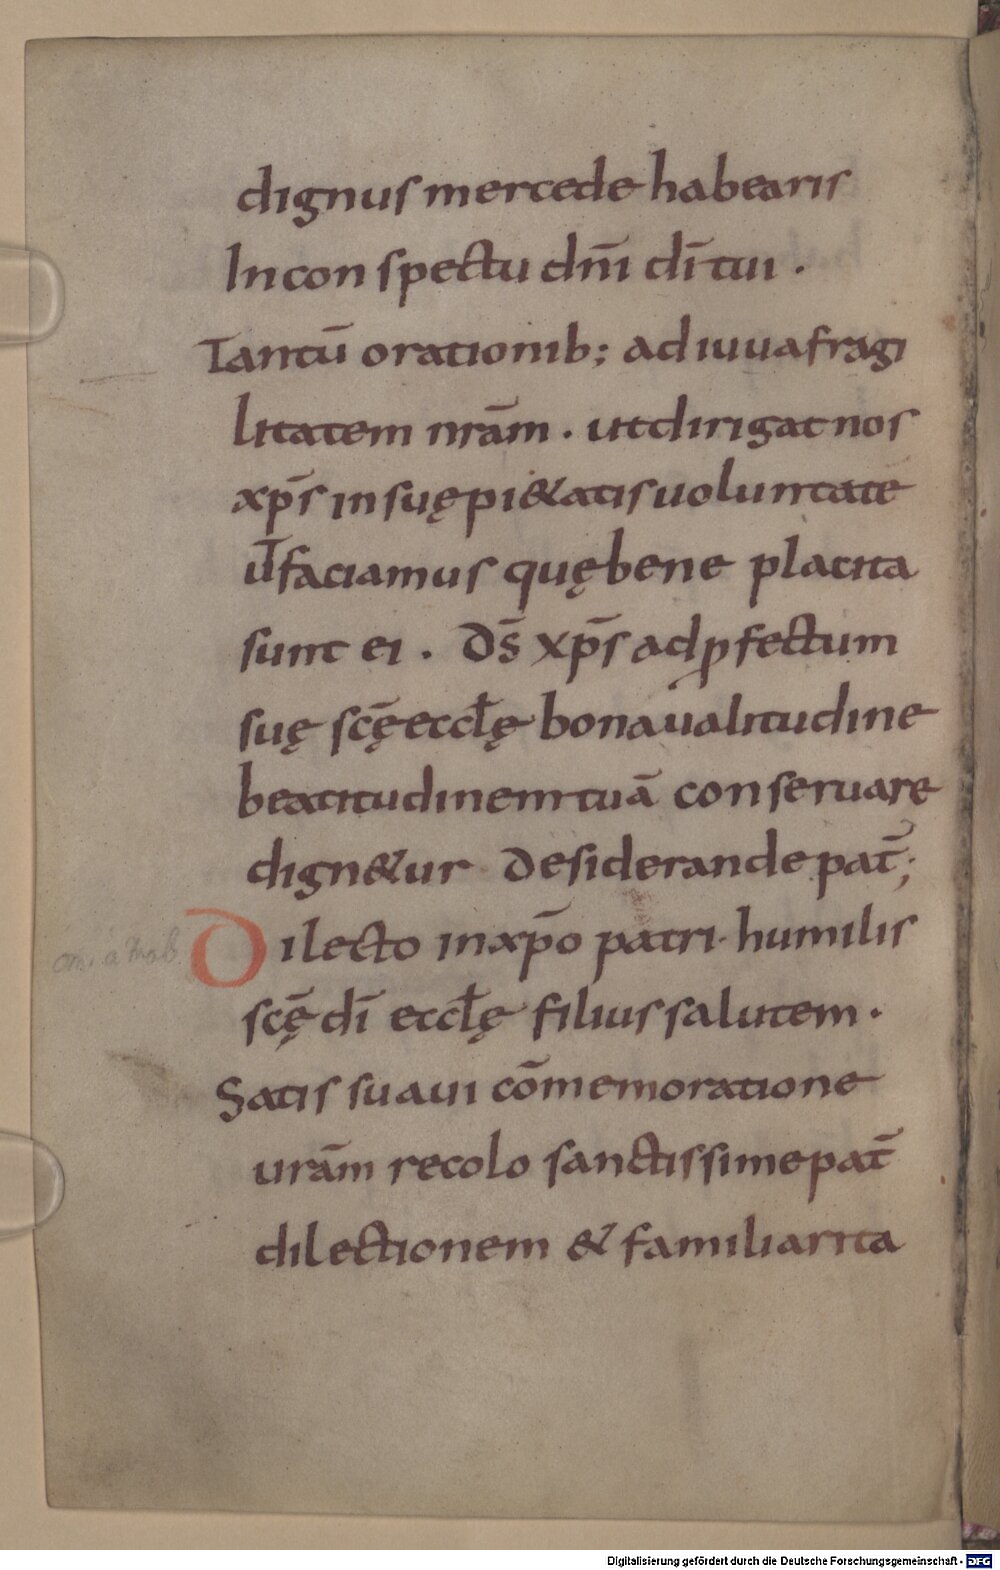 dignus mercede habearis
In conspectu dnī dī tui .
Tantū orationib; adiuua fragi
litatem nrām . ut dirigat nos
xpīs in suę pi&atis uoluntatē
ut̄ faciamus quę bene placita
sunt ei . Ds̄ xp̄s ad ꝓfectum
suę scę̄ eccłę bona ualitudine
beatitudinem tuā conseruare
dign&ur desiderande pat̄;
Dilecto in xp̄o patri humilis
scę̄ dī eccłę filius salutem .
Satis suaui cōmemoratione
urām recolo sanctissime pat̄
dilectionem & familiarita
Digitalisierung gefördert durch die Deutsche Forschungsgemeinschaft - DFG